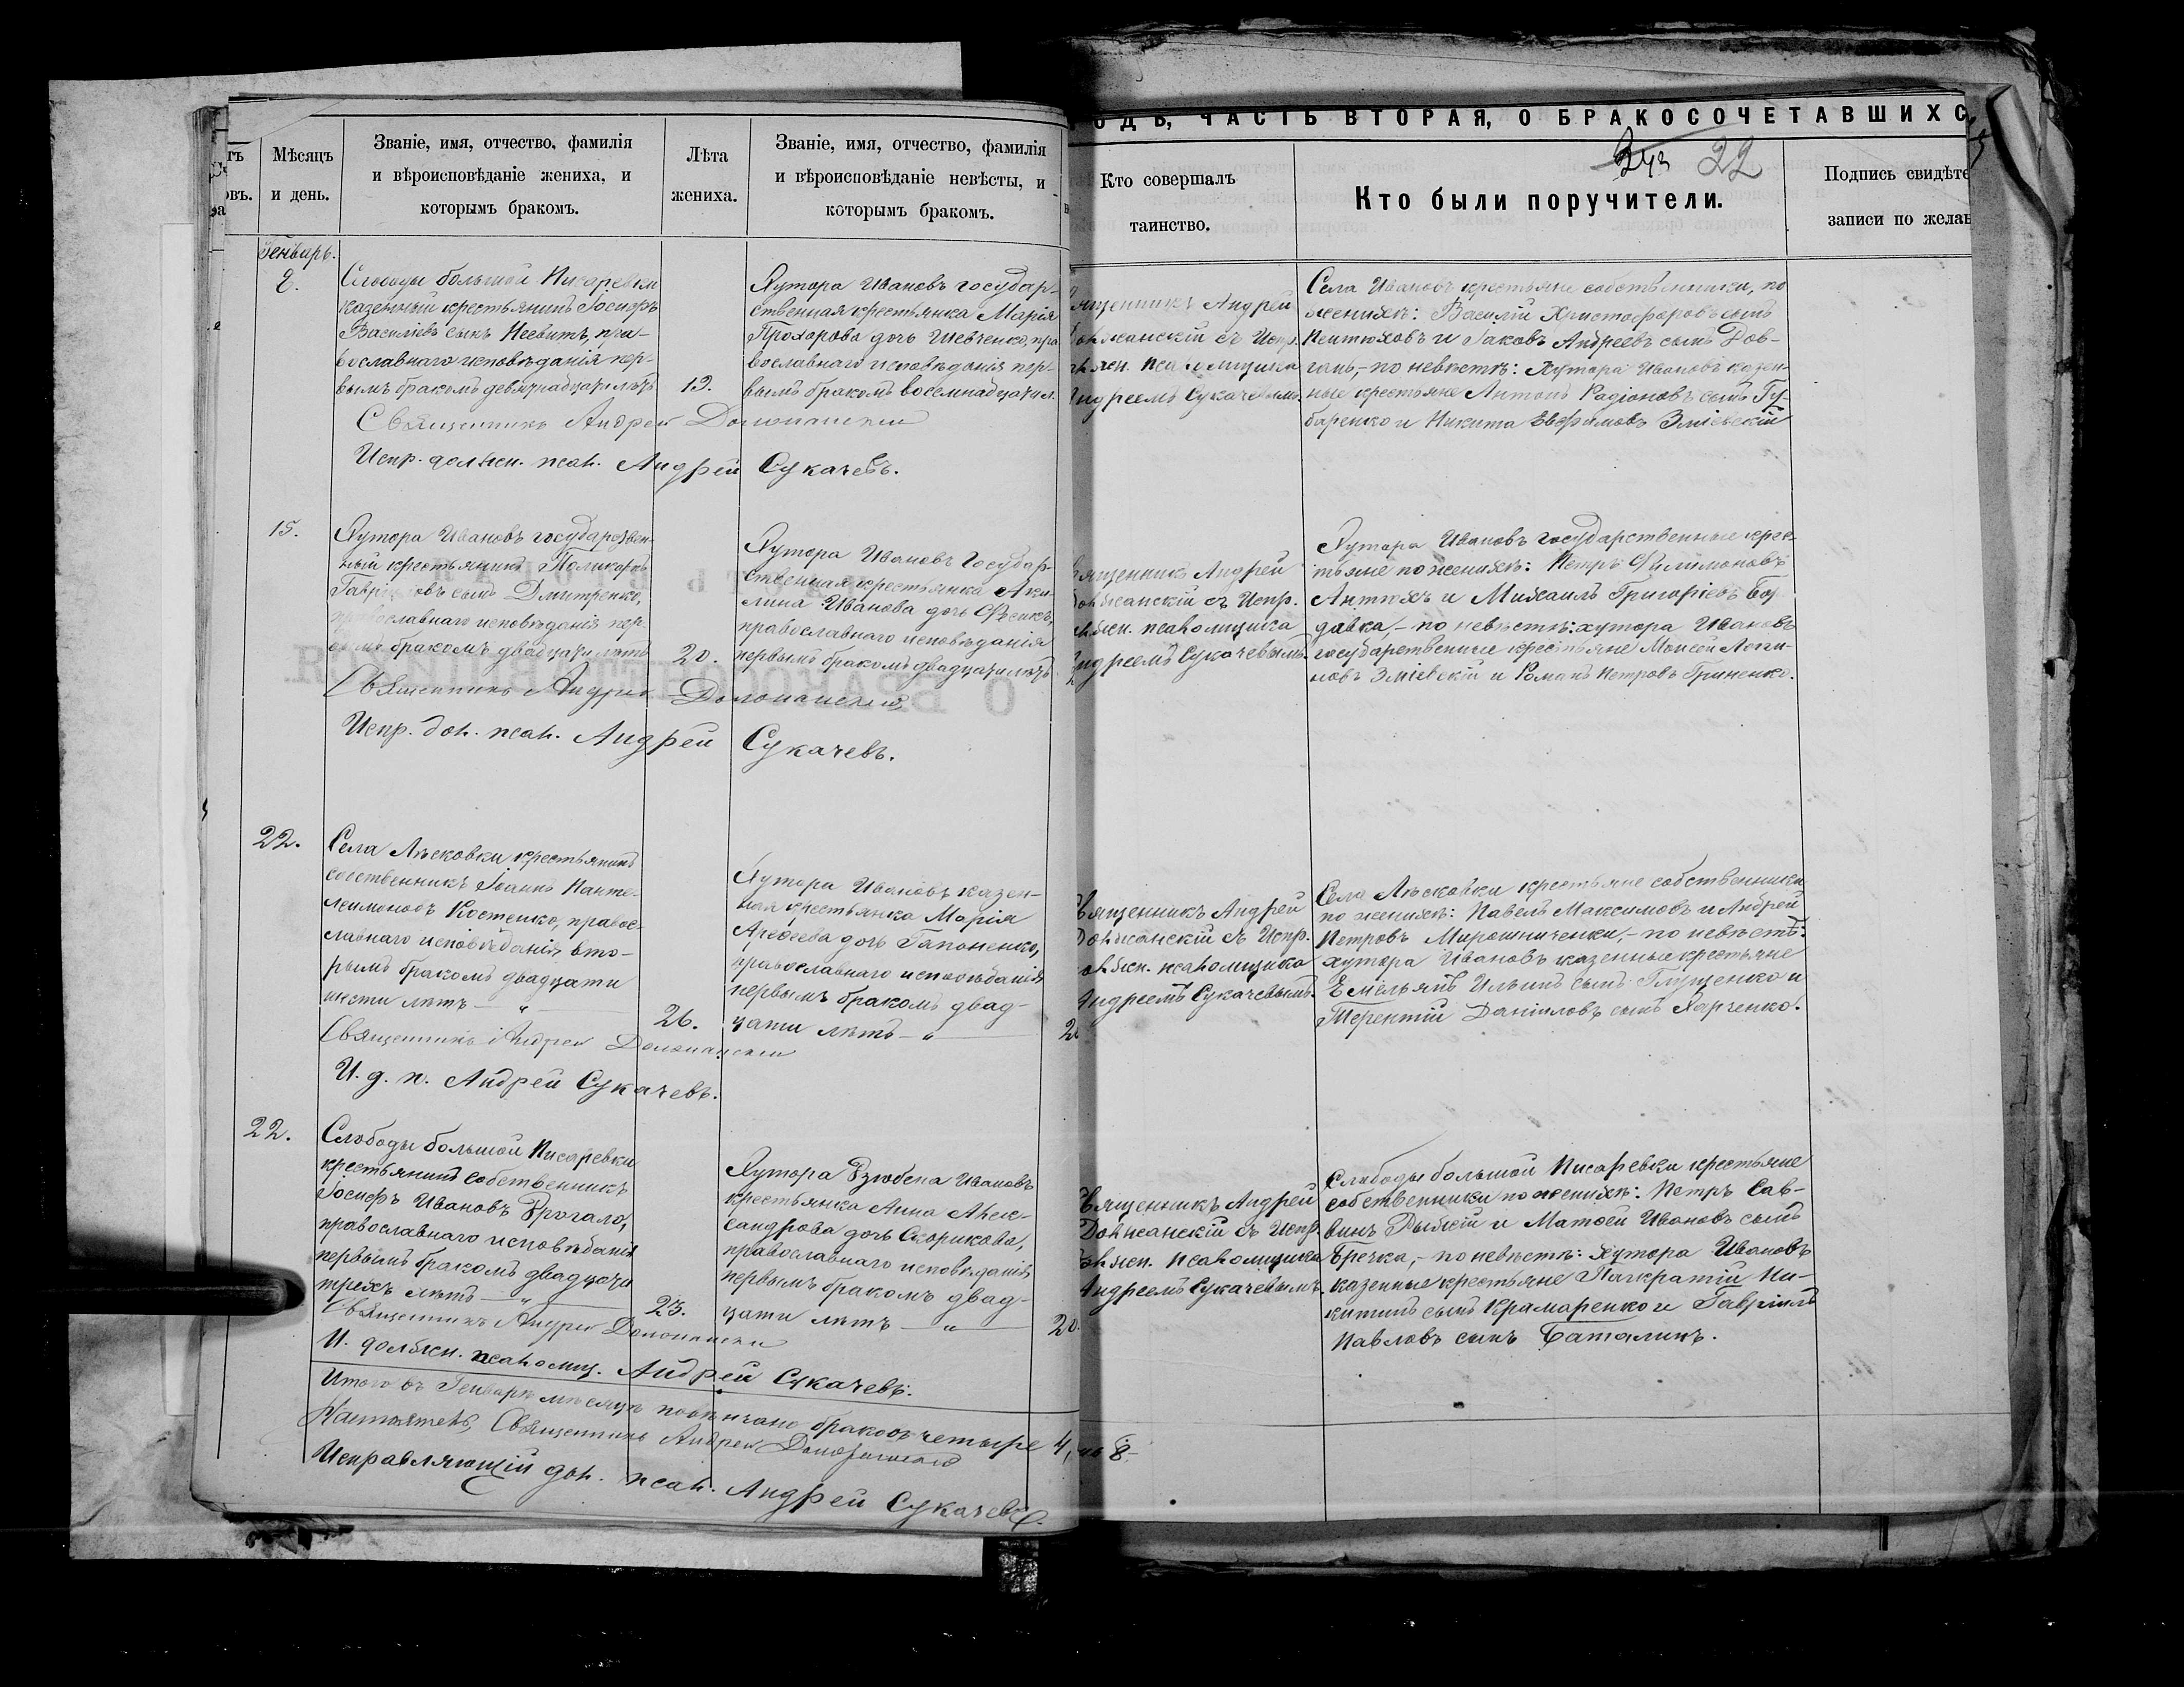 ОДѢ, ЧАСТЬ ВТОРАЯ, О БРАКОСОЧЕТАВШИХС
Мѣсяцъ
и день.
Званіе, имя, отчество, фамилія
и вѣроисповѣданіе жениха, и
которымъ бракомъ.
Лѣта
жениха.
Званіе, имя, отчество, фамилія
и вѣроисповѣданіе невѣсты, и
которымъ бракомъ.
Кто совершалъ
таинство.
22
Кто были поручители.
Подпись свидѣте
записи по желан
Генварь.
2.
Слободы большой Писаревки
казенный крестьянинъ Іосифъ
Василіевъ сынъ пра-
вославнаго исповѣданія пер-
вымъ бракомъ девятнадцати лѣтъ
19.
Хутора Ивановъ государ-
ственная крестьянка Марія
Прохорова дочь Шевченко, пра
вославнаго исповѣданія пер-
вымъ бракомъ восемнадцати л.
Священникъ Андрей Должанскій
Испр. должн. псал. Андрей Сукачевъ.
ященникъ Андрей
олжанскій съ Испр.
олжн. псаломщика
Андреемъ Сукачевымъ.
Села Ивановъ крестьяне собственники, по
женихѣ: Василій Христофоровъ сынъ
и Іаковъ Андреевъ сынъ Дов-
гань, – по невѣстѣ: Хутора Ивановъ казен-
ные крестьяне Антонъ Радіоновъ сынъ Гу-
баренко и Никита Евфимовъ Зміевскій
15.
Хутора Ивановъ государствен-
ный крестьянинъ Поликарпъ
Гавріиловъ сынъ Дмитренко,
православнаго исповѣданія пер-
вымъ бракомъ двадцати лѣтъ
20.
Хутора Ивановъ Государ-
ственная крестьянка Аки-
лина Иванова дочь
православнаго исповѣданія
первымъ бракомъ двадцати лѣтъ
Священникъ Андрей Должанскій
Испр. дол. псал. Андрей Сукачевъ.
вященникъ Андрей
олжанскій съ Испр.
олжн. псаломщика
Андреемъ Сукачевымъ.
Хутора Ивановъ государственные крес-
тьяне по женихѣ: Петръ Филимоновъ
Антюхъ и Михаилъ Григоріевъ Бор
давка, – по невѣстѣ: хутора Ивановъ
государственные крестьяне Моисей Логги-
новъ Зміевскій и Романъ Петровъ Гриненко.
22.
Села Лѣсковки крестьянинъ
собственникъ Іоаннъ Панте-
леимоновъ Костенко, правос-
лавнаго исповѣданія, вто-
рымъ бракомъ двадцати
шести лѣтъ – " –
26.
Хутора Ивановъ казен-
ная крестьянка Марія
Арефеева дочь Гапоненко,
православнаго исповѣданія
первымъ бракомъ двад-
цати лѣтъ – " –
Священникъ Андрей Должанскій
И. д. п. Андрей Сукачевъ.
вященникъ Андрей
Должанскій съ Испр.
олжн. псаломщика
Андреемъ Сукачевымъ.
Села Лѣсковки крестьяне собственники
по женихѣ: Павелъ Максимовъ и Андрей
Петровъ Мирошниченки, – по невѣстѣ:
хутора Ивановъ казенные крестьяне
Емельянъ Ильинъ сынъ Глущенко и
Терентій Даніиловъ сынъ Харченко.
22.
Слободы большой Писаревки
крестьянинъ собственникъ
Іосифъ Ивановъ Дрогало,
православнаго исповѣданія
первымъ бракомъ двадцати
трехъ лѣтъ – " –
23.
Хутора Дзюбена Ивановъ
крестьянка Анна Алек-
сандрова дочь Скорикова,
православнаго исповѣданія
первымъ бракомъ двад-
цати лѣтъ – " –
20.
Священникъ Андрей Должанскій
И. должн. псаломщ. Андрей Сукачевъ.
Священникъ Андрей
Должанскій съ Испр.
олжн. псаломщика
Андреемъ Сукачевымъ.
Слободы большой Писаревки крестьяне
собственники по женихѣ: Петръ Сав-
винъ Рыжій и Матѳей Ивановъ сынъ
Гречка, – по невѣстѣ: Хутора Ивановъ
казенные крестьяне Панкратій Ни-
китинъ сынъ Крамаренко и Гавріилъ
Павловъ сынъ Баталинъ.
Итого въ Генварѣ мѣсяцѣ повѣнчано браковъ четыре 4,
Настоятель, Священникъ Андрей Должанскій
Исправляющій дол. псал. Андрей Сукачевъ.